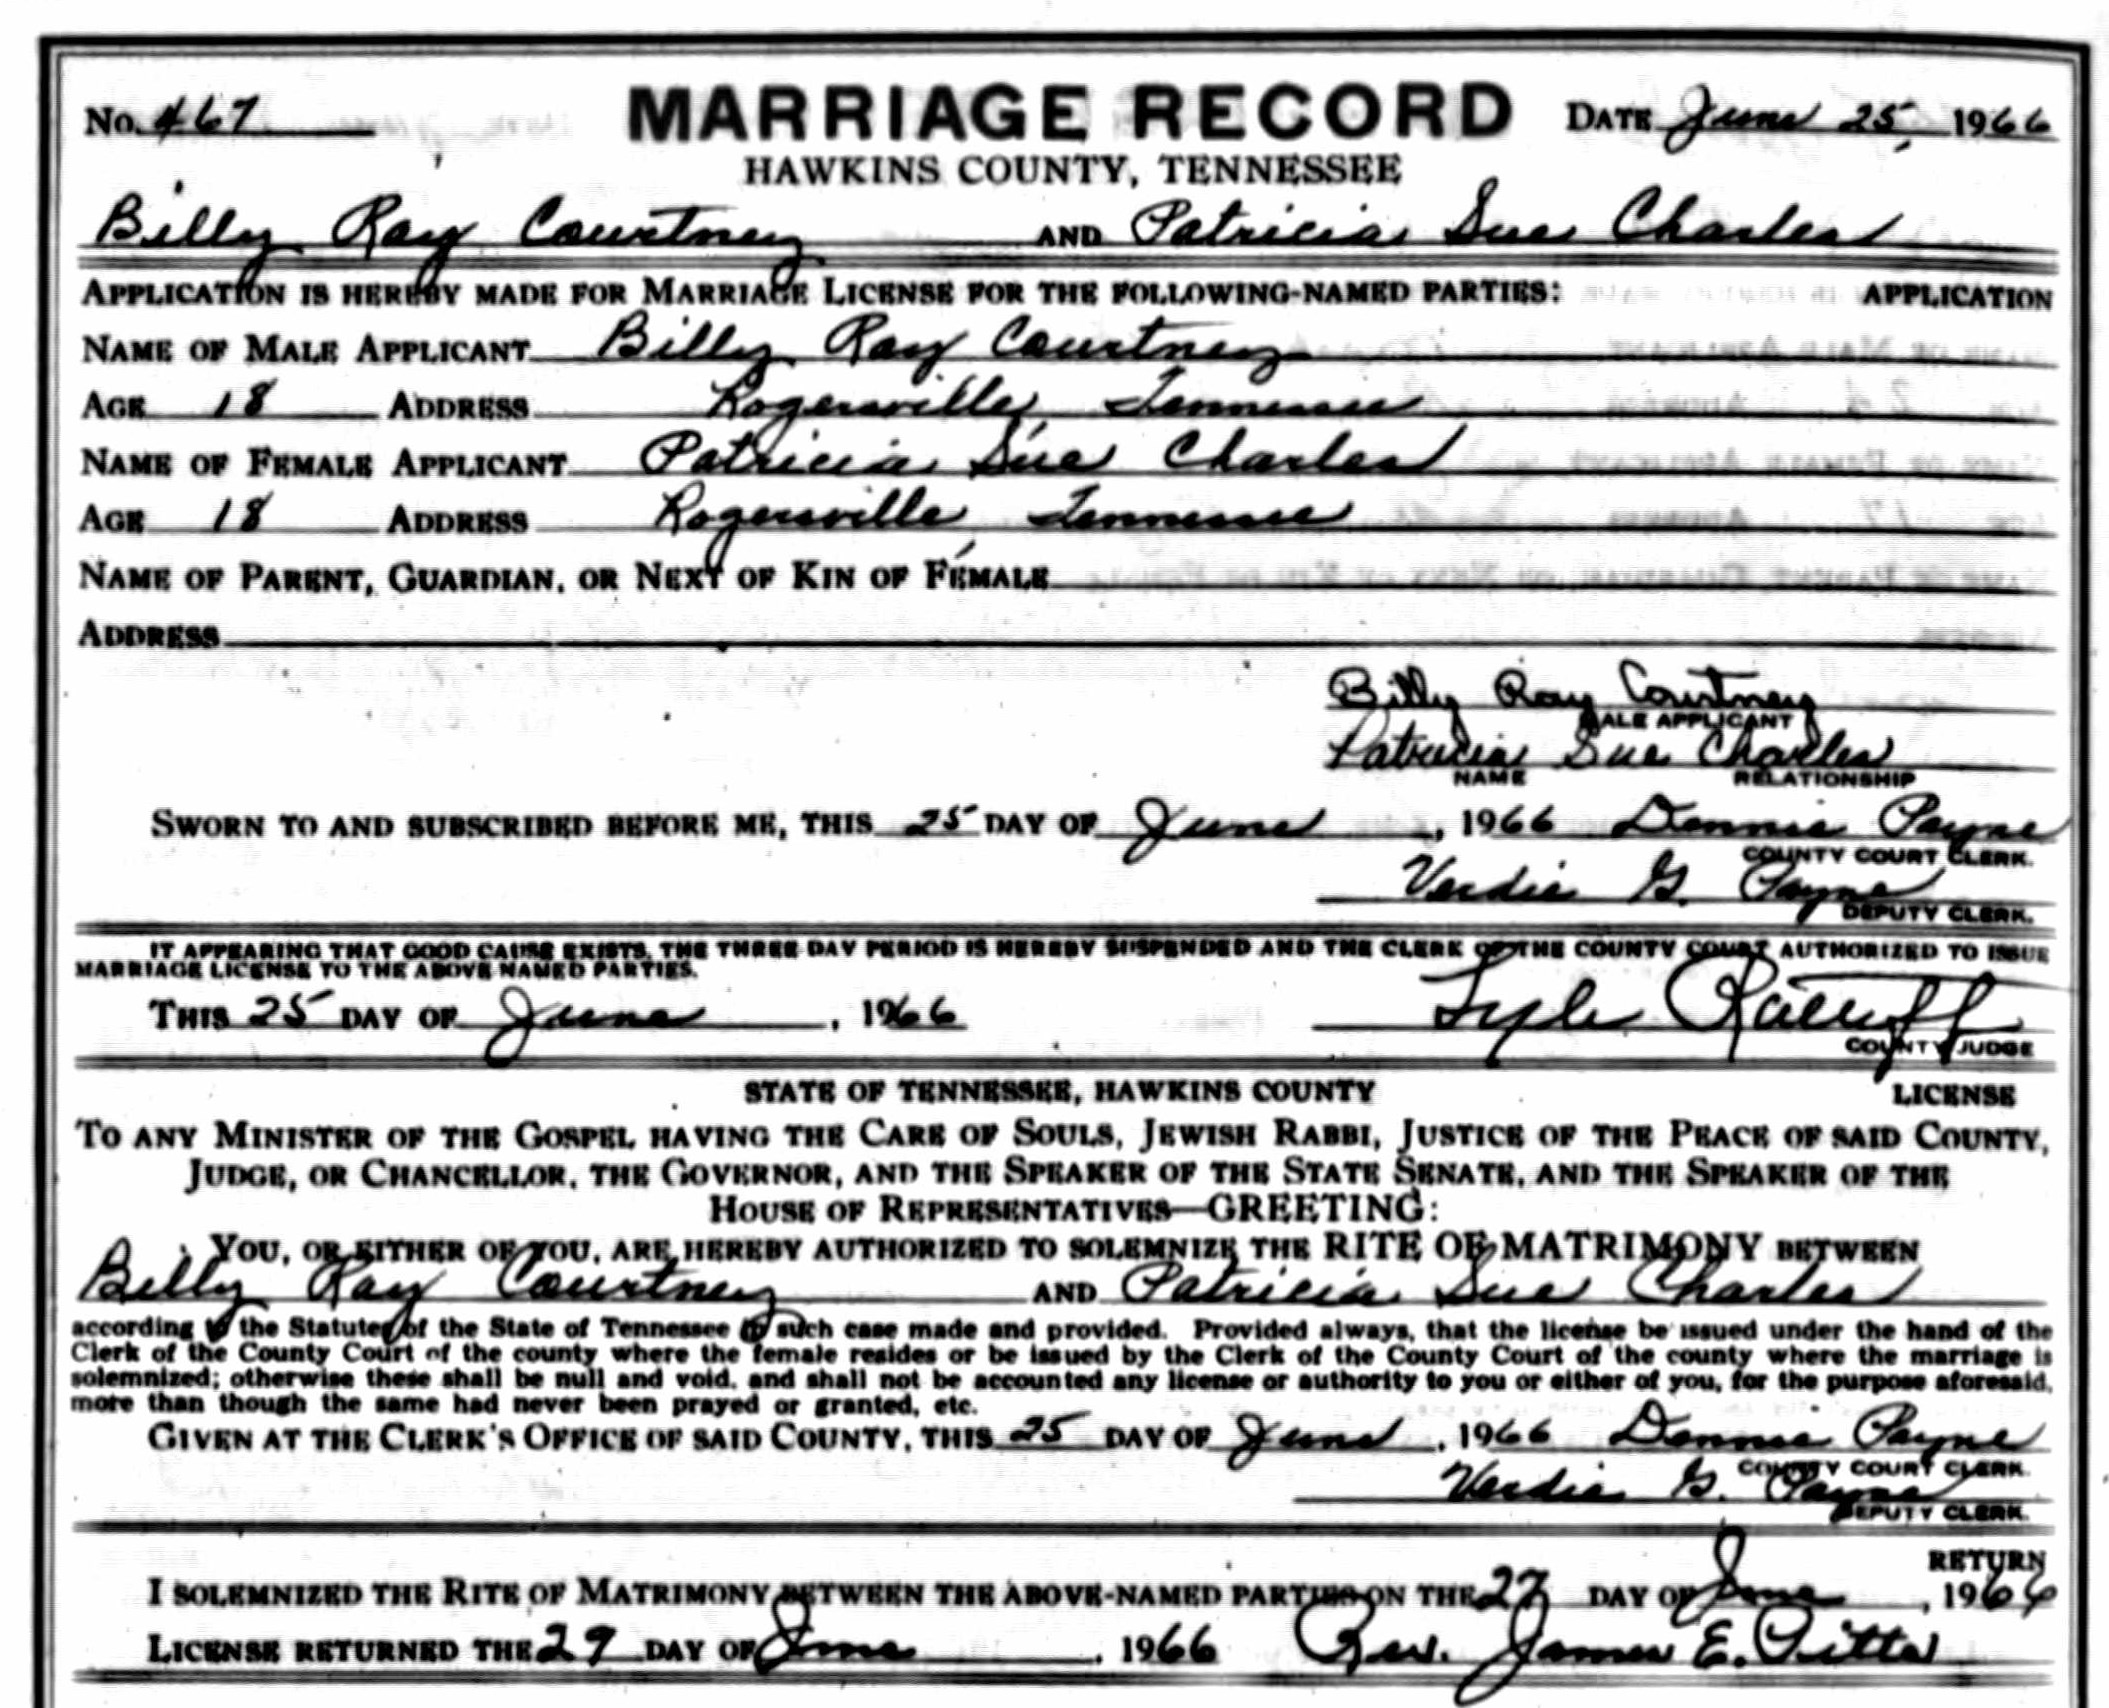 No. 467 MARRIAGE RECORD DATE June 25, 1966
HAWKINS COUNTY, TENNESSEE
Billy Ray Courtney AND Patricia Sue Charles
APPLICATION IS HEREBY MADE FOR MARRIAGE LICENSE FOR THE FOLLOWING-NAMED PARTIES: APPLICATION
NAME OF MALE APPLICANT Billy Ray Courtney
AGE 18 ADDRESS Rogersville, Tennessee
NAME OF FEMALE APPLICANT Patricia Sue Charles
AGE 18 ADDRESS Rogersville, Tennessee
NAME OF PARENT, GUARDIAN, OR NEXT OF KIN OF FEMALE
ADDRESS
Billy Ray Courtney
MALE APPLICANT
Patricia Sue Charles
NAME RELATIONSHIP
SWORN TO AND SUBSCRIBED BEFORE ME, THIS 25 DAY OF June, 1966 Dennis Payne
COUNTY COURT CLERK.
Verdie G. Payne
DEPUTY CLERK.
IT APPEARING THAT GOOD CAUSE EXISTS, THE THREE DAY PERIOD IS HEREBY SUSPENDED AND THE CLERK OF THE COUNTY COURT AUTHORIZED TO ISSUE
MARRIAGE LICENSE TO THE ABOVE NAMED PARTIES.
THIS 25 DAY OF June, 1966 Lyle Ratliff
COUNTY JUDGE
STATE OF TENNESSEE, HAWKINS COUNTY LICENSE
TO ANY MINISTER OF THE GOSPEL HAVING THE CARE OF SOULS, JEWISH RABBI, JUSTICE OF THE PEACE OF SAID COUNTY,
JUDGE, OR CHANCELLOR, THE GOVERNOR, AND THE SPEAKER OF THE STATE SENATE, AND THE SPEAKER OF THE
HOUSE OF REPRESENTATIVES—GREETING:
YOU, OR EITHER OF YOU, ARE HEREBY AUTHORIZED TO SOLEMNIZE THE RITE OF MATRIMONY BETWEEN
Billy Ray Courtney AND Patricia Sue Charles
according to the Statutes of the State of Tennessee in such case made and provided. Provided always, that the license be issued under the hand of the
Clerk of the County Court of the county where the female resides or be issued by the Clerk of the County Court of the county where the marriage is
solemnized; otherwise these shall be null and void, and shall not be accounted any license or authority to you or either of you, for the purpose aforesaid,
more than though the same had never been prayed or granted, etc.
GIVEN AT THE CLERK'S OFFICE OF SAID COUNTY, THIS 25 DAY OF June, 1966 Dennis Payne
COUNTY COURT CLERK.
Verdie G. Payne
DEPUTY CLERK.
RETURN
I SOLEMNIZED THE RITE OF MATRIMONY BETWEEN THE ABOVE-NAMED PARTIES ON THE 27 DAY OF June, 1966
LICENSE RETURNED THE 29 DAY OF June, 1966 Rev. James E. Pitts